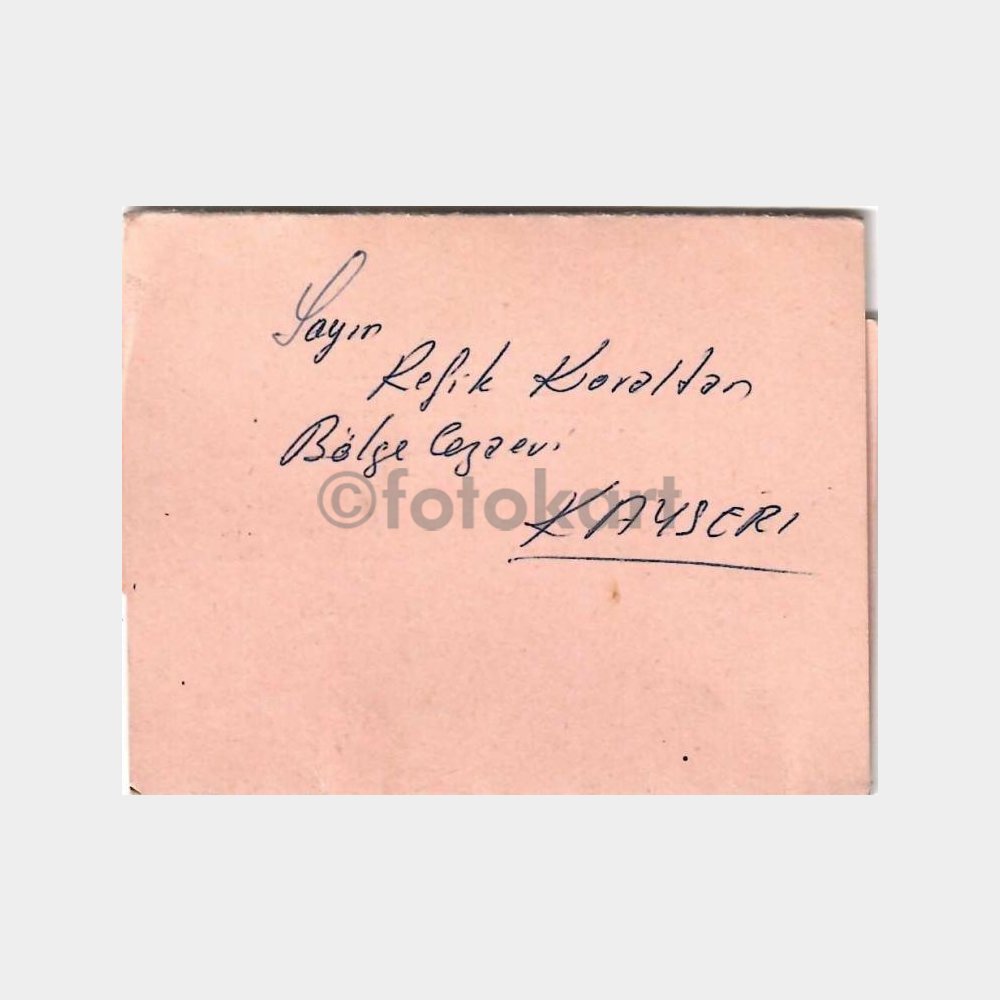 Sayın
Refik Koraltan
Bölge Cezaevi
©fotokart
KAYSERI